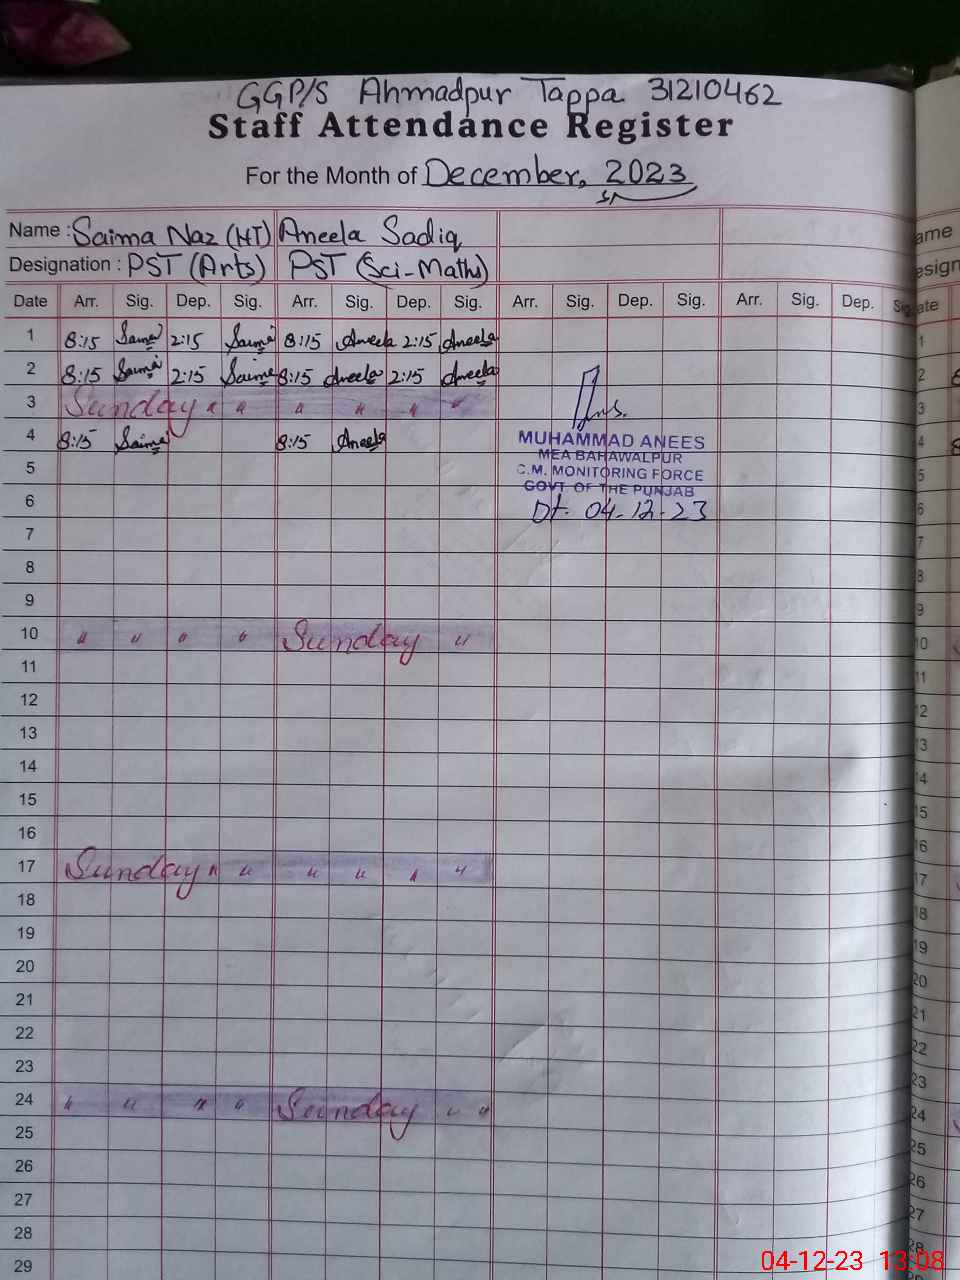 GGP/S Ahmadpur Tappa 31210462
Staff Attendance Register
For the Month of December, 2023
Name : Saima Naz (HT) Aneela Sadiq
Designation : PST (Arts) PST (Sci-Maths)
Date Arr. Sig. Dep. Sig. Arr. Sig. Dep. Sig. Arr. Sig. Dep. Sig. Arr. Sig. Dep. Sig
1 8:15 Saima 2:15 Saima 8:15 Aneela 2:15 Aneela
2 8:15 Saima 2:15 Saima 8:15 Aneela 2:15 Aneela
3 Sunday " " " " " "
4 8:15 Saima 8:15 Aneela
MUHAMMAD ANEES
MEA BAHAWALPUR
C.M. MONITORING FORCE
GOVT OF THE PUNJAB
Dt. 04-12-23
5
6
7
8
9
10 " " " " Sunday "
11
12
13
14
15
16
17 Sunday " " " " " "
18
19
20
21
22
23
24 " " " " Sunday " "
25
26
27
28
29
ame
esign
ate
1
2 8
3
4 8
5
6
7
8
9
10
11
12
13
14
15
16
17
18
19
20
21
22
23
24
25
26
27
28
04-12-23 13:08